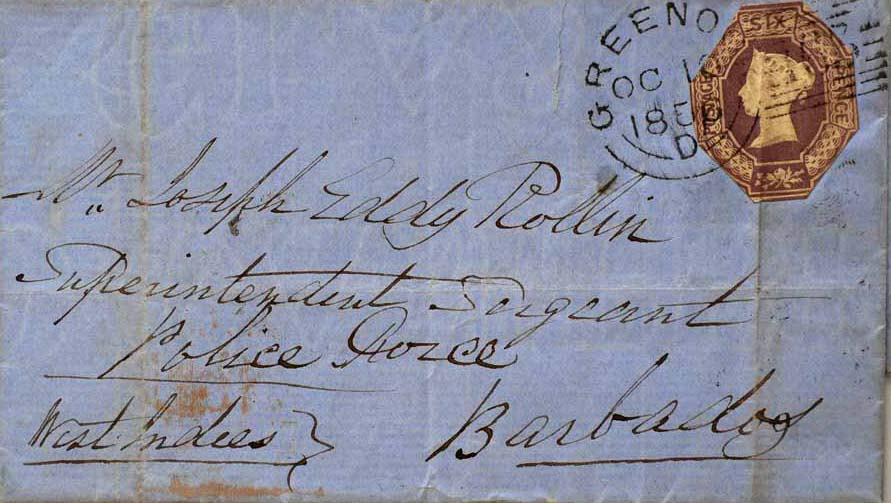 GREENO
OC 1
185
D
SIX
POSTAGE
Mr. Joseph Eddy Rollin
Superintendent Sergeant
Police Force
West Indees
Barbados